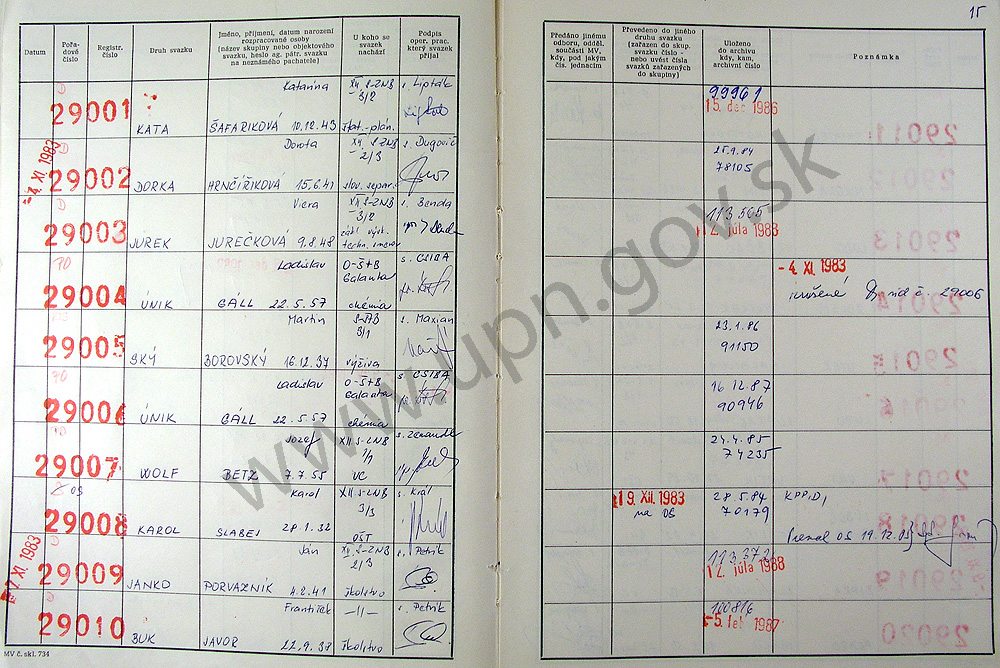 15
Datum
Pořadové číslo
Registr. číslo
Druh svazku
Jméno, příjmení, datum narození rozpracované osoby (název skupiny nebo objektového svazku, heslo ag. pátr. svazku na neznámého pachatele)
U koho se svazek nachází
Podpis oper. prac. který svazek přijal
Předáno jinému odboru, odděl. součásti MV, kdy, pod jakým čís. jednacím
Převedeno do jiného druhu svazku (zařazen do skup. svazku číslo - nebo uvést čísla svazků zařazených do skupiny)
Uloženo do archivu kdy, kam, archivní číslo
Poznámka
Katarína XII. S-ZNB s. Lipták 99961
29001 3/2 15. dec 1986
KATA ŠAFARIKOVÁ 10.12.43 plán.
-4. XI. 1983
Dorota XII. S-ZNB s. Dugovič 25.9.84
29002 2/3 78105
DORKA HRNČIŘIKOVÁ 15.6.41 slov. separ.
Viera XII S-ZNB s. Benda 113565
29003 3/2 júla 1988
JUREK JUREČKOVÁ 9.8.48 zákl. výsk.
Ladislav O-ŠtB s. CSIBA -4. XI. 1983
29004 Galanta zrušené 29006
ÚNIK GÁLL 22.5.57 chémia
Martin s. Maxian 23.1.86
29005 3/1 91150
SKÝ BOROVSKÝ 16.12.37 výživa
Ladislav O-ŠtB s. CSIBA 16.12.87
29006 Galanta 90946
ÚNIK GÁLL 22.5.57 chémia
Jozef XII S-ZNB 24.4.85
29007 1/1 74235
WOLF BETZ 7.7.55 VC
OS Karol XII S-ZNB s. Král 19. XII. 1983 28.5.84 KPPID,
29008 3/3 na OS 70179
KAROL SLABEJ 28.1.32 OŠT OS 19.12.83
XI. 1983
Ján XII. S-ZNB s. Petrík 113372
29009 2/3 júla 1988
JANKO PORVAZNIK 4.2.41 školstvo
František -||- s. Petrik 100816
29010 -5. feb 1987
BUK JAVOR 22.9.38 školstvo
MV č. skl. 734
www.upn.gov.sk